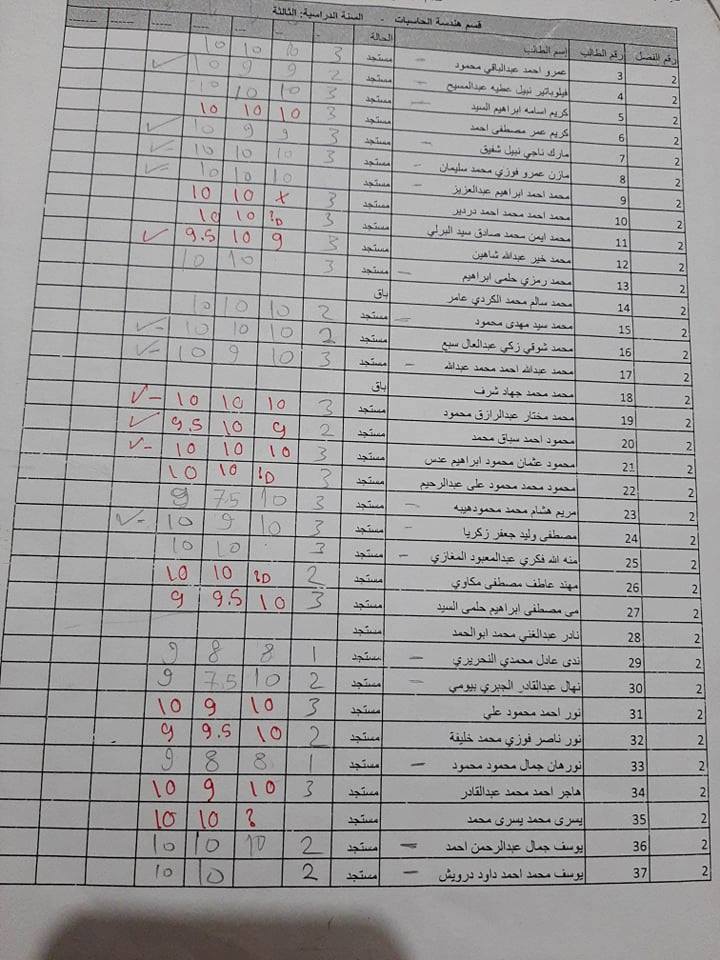 قسم هندسة الحاسبات - السنة الدراسية: الثالثة
رقم الفصل رقم الطالب إسم الطالب الحالة
2 3 عمرو احمد عبدالباقي محمود مستجد 3 10 10 10
2 4 فيلوباتير نبيل عطيه عبدالمسيح مستجد 2 9 9 10 ✓
2 5 كريم اسامه ابراهيم السيد مستجد 3 10 10 10
2 6 كريم عمر مصطفى احمد مستجد 3 10 10 10
2 7 مارك ناجي نبيل شفيق مستجد 3 9 9 10 ✓
2 8 مازن عمرو فوزي محمد سليمان مستجد 3 10 10 10 ✓-
2 9 محمد احمد ابراهيم عبدالعزيز مستجد 10 10 10 ✓-
2 10 محمد احمد محمد احمد دردير مستجد 3 x 10 10
2 11 محمد ايمن محمد صادق سيد البرلي مستجد 3 10 10
2 12 محمد خير عبدالله شاهين مستجد 3 9 10 9.5 ✓
2 13 محمد رمزي حلمى ابراهيم مستجد 3 10 10
2 14 محمد سالم محمد الكردي عامر باق
2 15 محمد سيد مهدى محمود مستجد 2 10 10 10
2 16 محمد شوقي زكي عبدالعال سبع مستجد 2 10 10 10 ✓-
2 17 محمد عبدالله احمد محمد عبدالله مستجد 3 10 9 10 ✓-
2 18 محمد محمد جهاد شرف باق
2 19 محمد مختار عبدالرازق محمود مستجد 3 10 10 10 ✓-
2 20 محمود احمد سباق محمد مستجد 2 9 10 9.5 ✓
2 21 محمود عثمان محمود ابراهيم عدس مستجد 3 10 10 10 ✓-
2 22 محمود محمد محمود على عبدالرحيم مستجد 3 10 10
2 23 مريم هشام محمد محمودهيبه مستجد 3 10 7.5 9
2 24 مصطفى وليد جعفر زكريا مستجد 3 10 9 10 ✓-
2 25 منه الله فكري عبدالمعبود المغازي مستجد 3 10 10
2 26 مهند عاطف مصطفى مكاوي مستجد 2 10 10
2 27 مى مصطفى ابراهيم حلمى السيد مستجد 3 10 9.5 9
2 28 نادر عبدالغني محمد ابوالحمد مستجد
2 29 ندى عادل محمدي النحريري مستجد 1 8 8 9
2 30 نهال عبدالقادر الجبري بيومي مستجد 2 10 7.5 9
2 31 نور احمد محمود علي مستجد 3 10 9 10
2 32 نور ناصر فوزي محمد خليفة مستجد 2 10 9.5 9
2 33 نورهان جمال محمود محمود مستجد 1 8 8 9
2 34 هاجر احمد محمد عبدالقادر مستجد 3 10 9 10
2 35 يسرى محمد يسرى محمد مستجد ? 10 10
2 36 يوسف جمال عبدالرحمن احمد مستجد 2 10 10 10
2 37 يوسف محمد احمد داود درويش مستجد 2 10 10